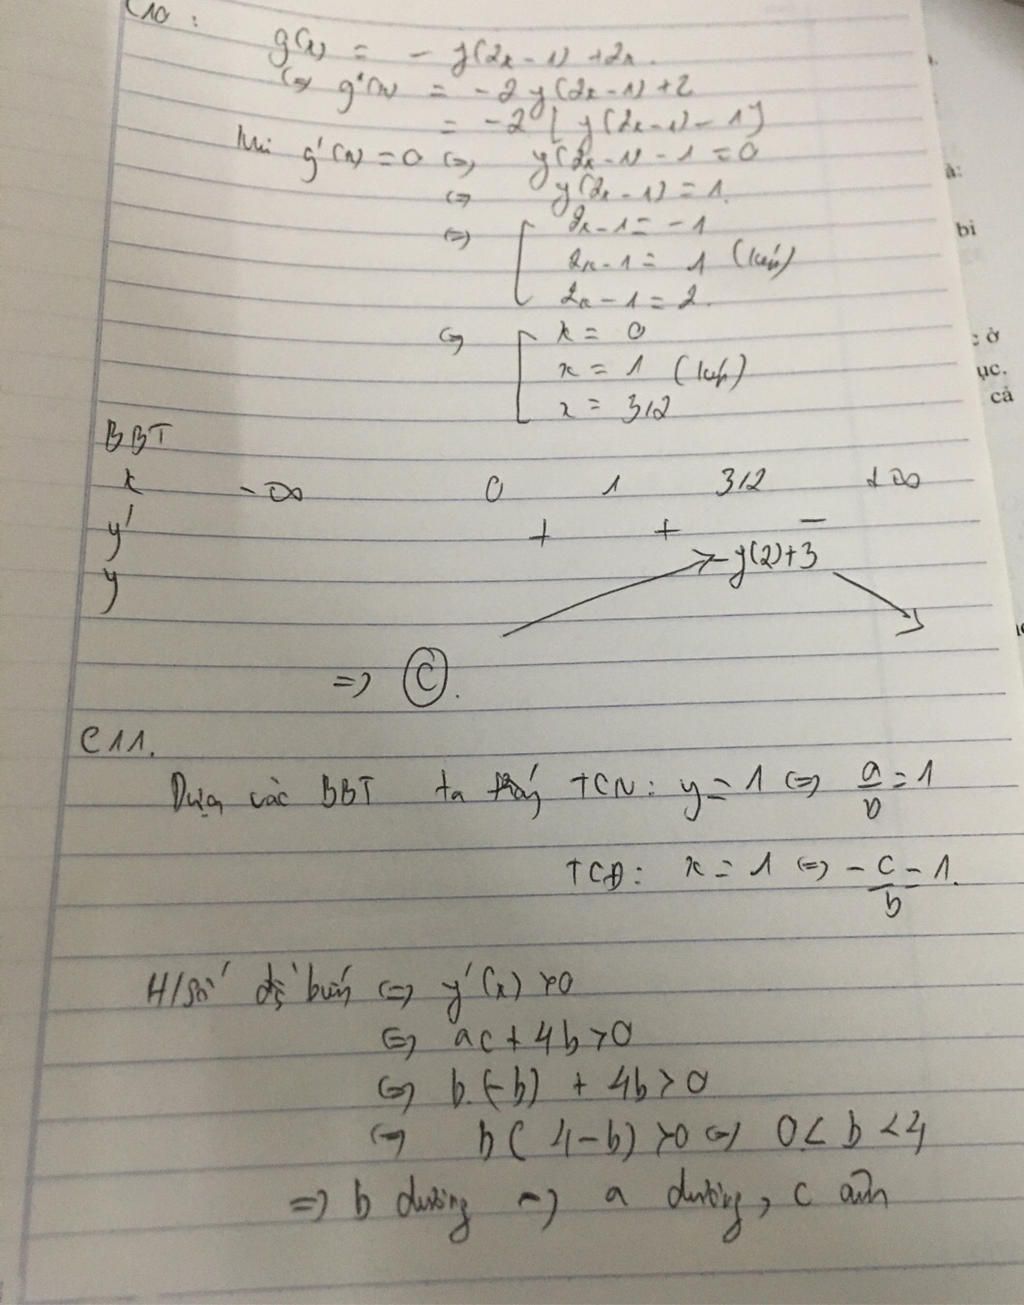 C10 :
g(x) = - y(2x - 1) + 2x.
(=) g'(x) = -2 y(2x - 1) + 2
= -2 [ y(2x - 1) - 1 ]
khi g'(x) = 0 (=) y(2x - 1) - 1 = 0
(=) y(2x - 1) = 1.
(=) [ 2x - 1 = -1
2x - 1 = 1 (kép)
2x - 1 = 2.
(=) [ x = 0
x = 1 (kép)
x = 3/2
BBT
x -∞ 0 1 3/2 +∞
y' + + -
y -y(2)+3
=) C .
C11.
Dựa vào BBT ta thấy TCN: y = 1 (=) a/b = 1
TCĐ: x = 1 (=) -c/b = 1.
H/số đ/biến (=) y'(x) > 0
(=) ac + 4b > 0
(=) b.(-b) + 4b > 0
(=) b( 4-b) > 0 (=) 0 < b < 4
=) b dương =) a dương, c âm
à:
bi
: ở
ục.
cả